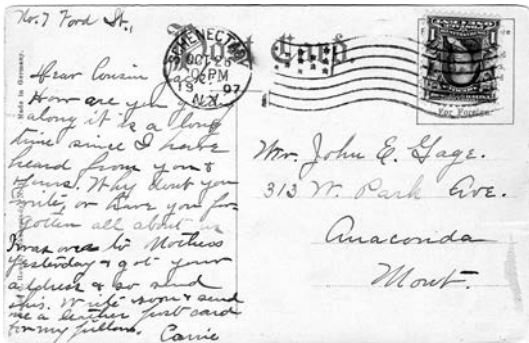 No. 7 Ford St.,
Post Card.
SCHENECTADY
OCT 26
PM
19 07
N.Y.
1
Made in Germany.
Dear Cousin
How are you
along it is a long
time since I have
heard from you &
yours. Why dont you
write, or have you for-
gotten all about us
I was over to
yesterday & got your
address & so send
this. Write soon & send
me a leather post card
for my pillow.
Carrie
Mr. John E. Gage.
313 W. Park Ave.
Anaconda
Mont.